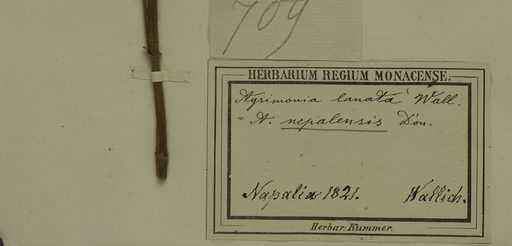 709
HERBARIUM REGIUM MONACENSE.
Agrimonia lanata Wall.
= A. nepalensis Don.
Napalia 1821. Wallich.
Herbar. Kummer.